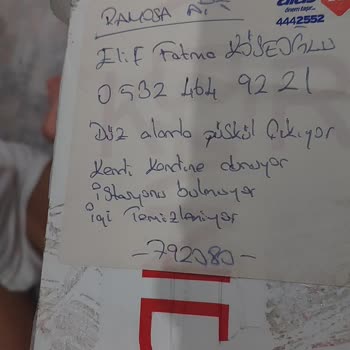 RAMOSA
4442552
Elif Fatma KÖSEOĞLU
0532 464 9221
Düz alanda püskül Çıkıyor
Kendi Kendine dönüyor
istasyonu bulmuyor
içi Temizleniyor
-792080-